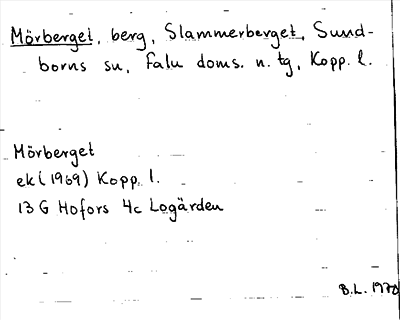 Mörberget, berg, Slammerberget, Sund-
borns sn, Falu doms. n. tg, Kopp. l.
Mörberget
ek (1969) Kopp. l.
13 G Hofors 4c Logärden
B.L. 1970